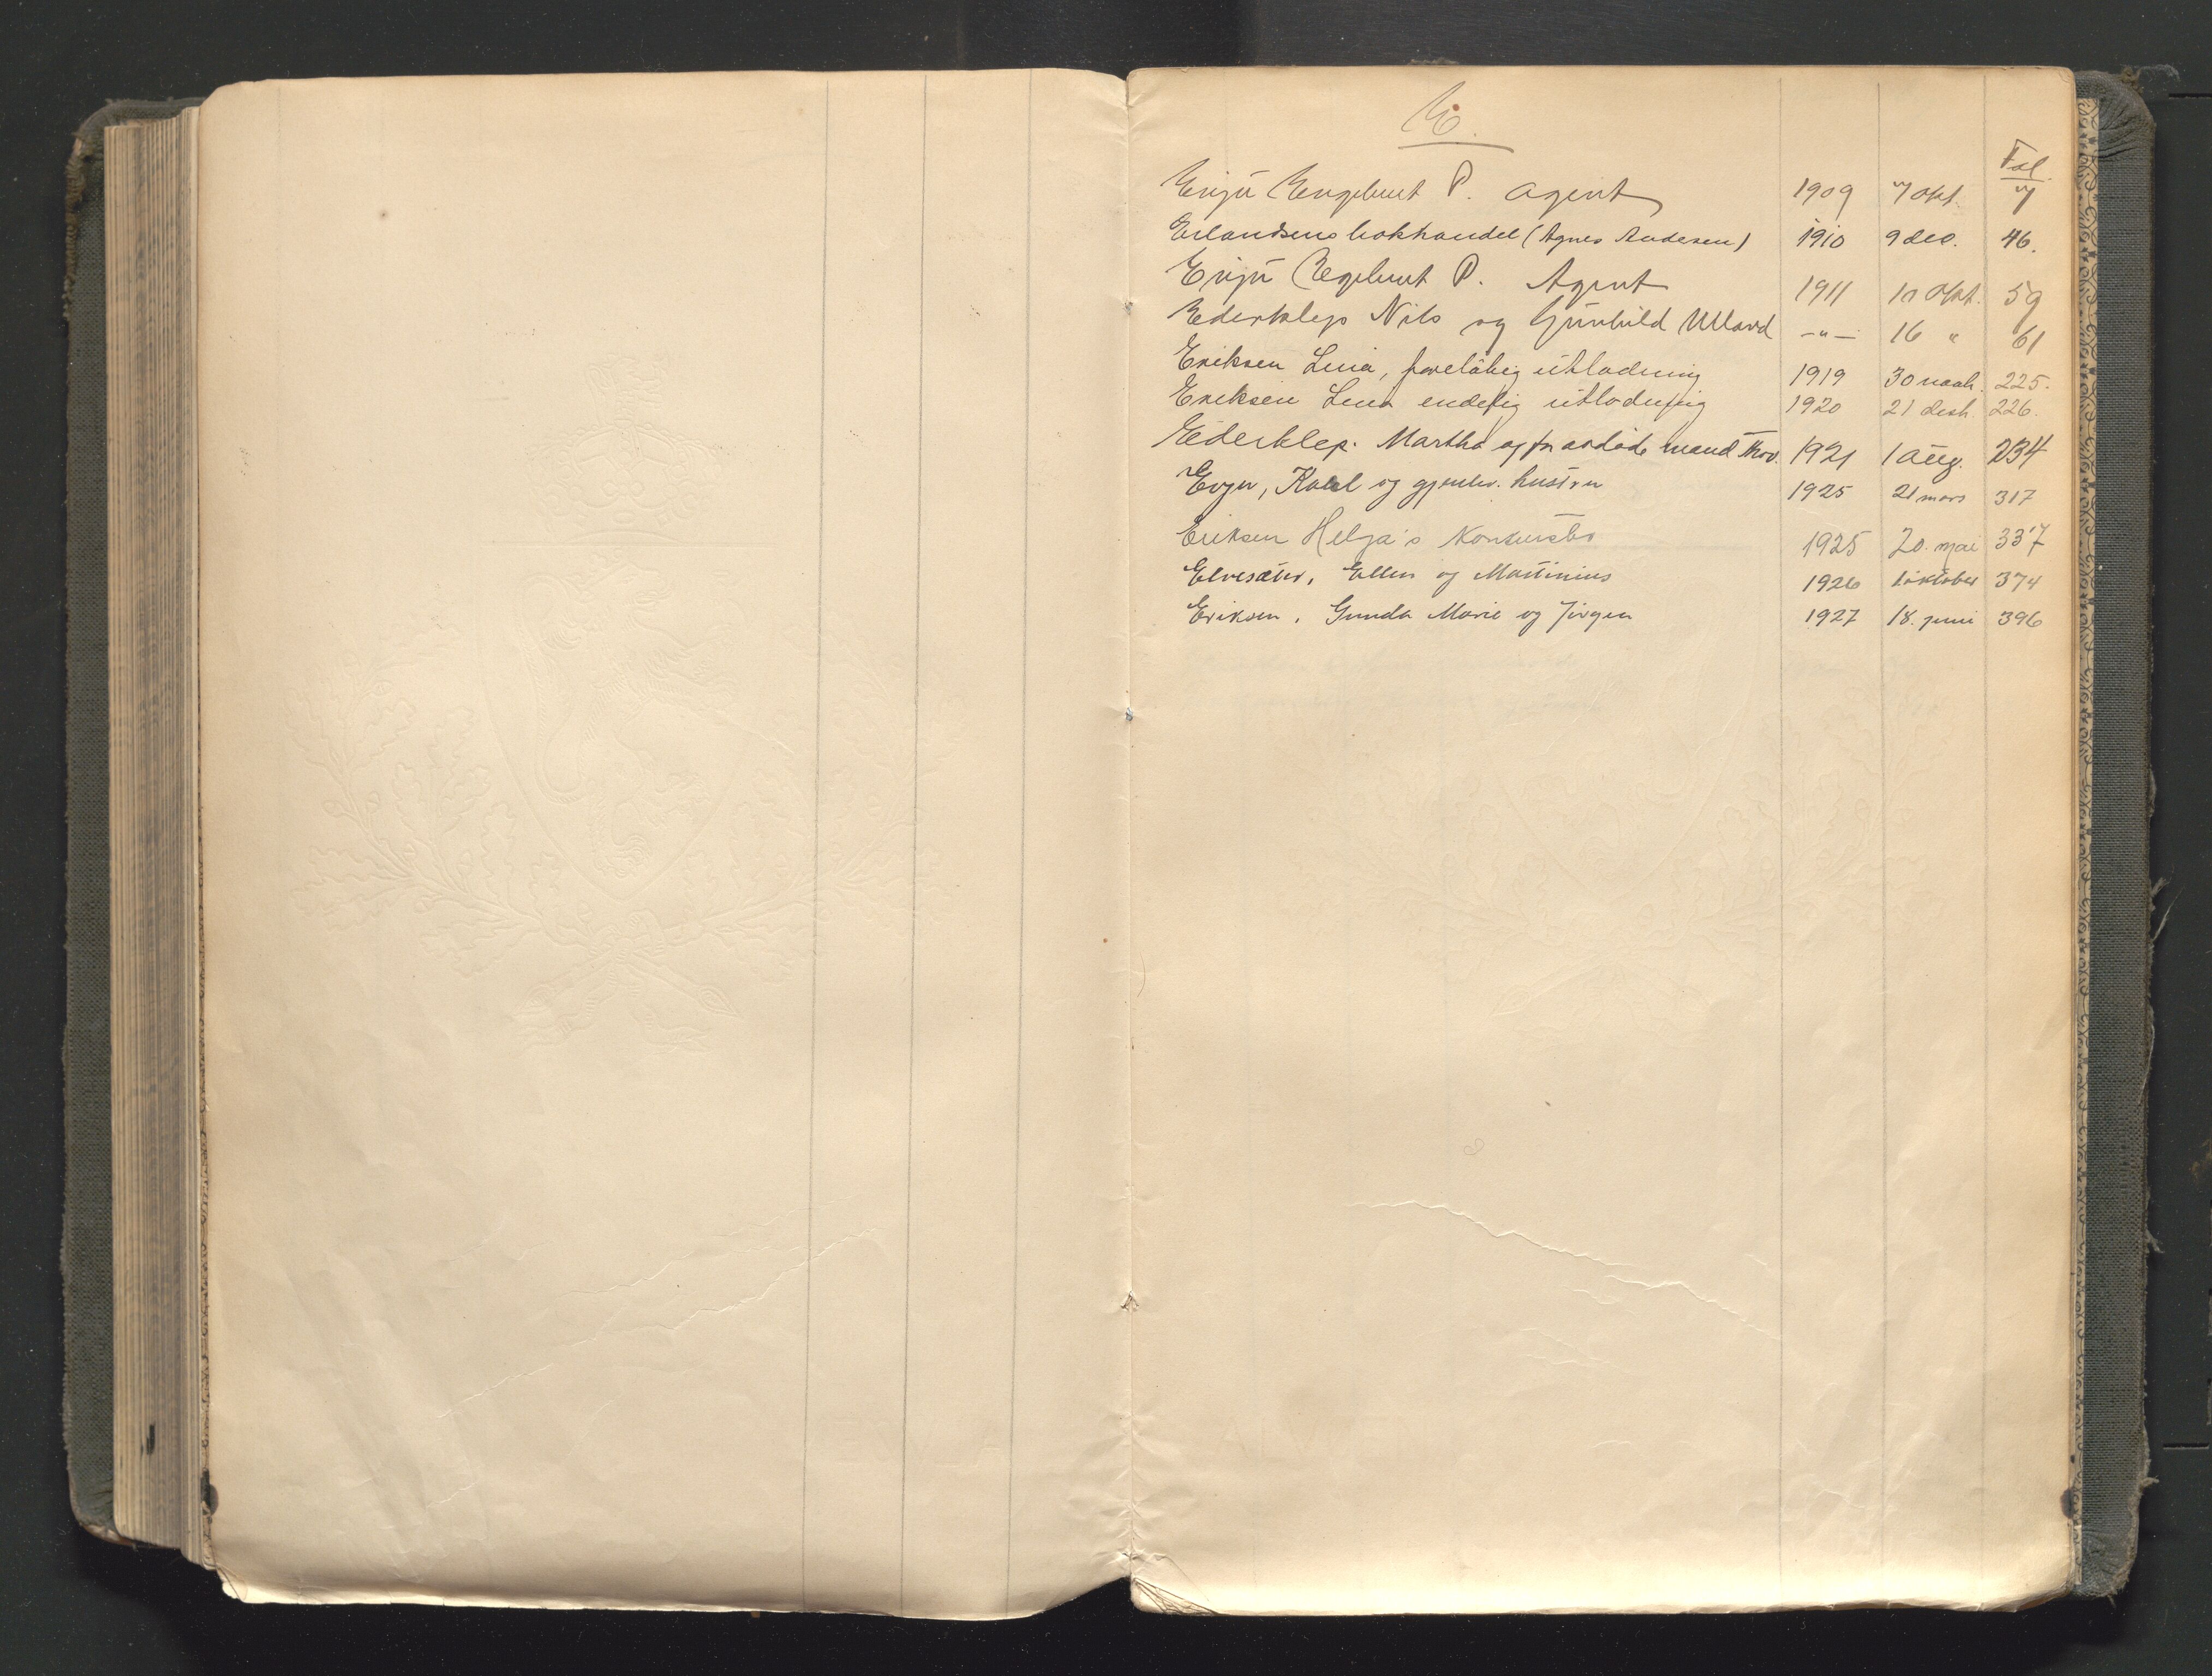 E.
Fol.
Evju Engebret P. Agent 1909 7 Okt. 7
Erlandsens bokhandel (Agnes Andesen) 1910 9 dec. 46.
Evju Engebret P. Agent 1911 10 Okt. 59
Ederklep Nils og Gunhild Ulland —"— 16 " 61
Eriksen Lina, foreløbig utlodning 1919 30 225.
Eriksen Lina endelig utlodning 1920 21 226.
Ederklep. Martha og fr avdøde mand Thov. 1921 1 Aug. 234
Evju, Kabl og gjenlev. hustru 1925 21 mars 317
Eriksen Helga's Konkursbo 1925 20. mai 337
Elvesæter, Ellen og Martinius 1926 1 oktober 374
Eriksen, Gunda Marie og Jørgen 1927 18. juni 396